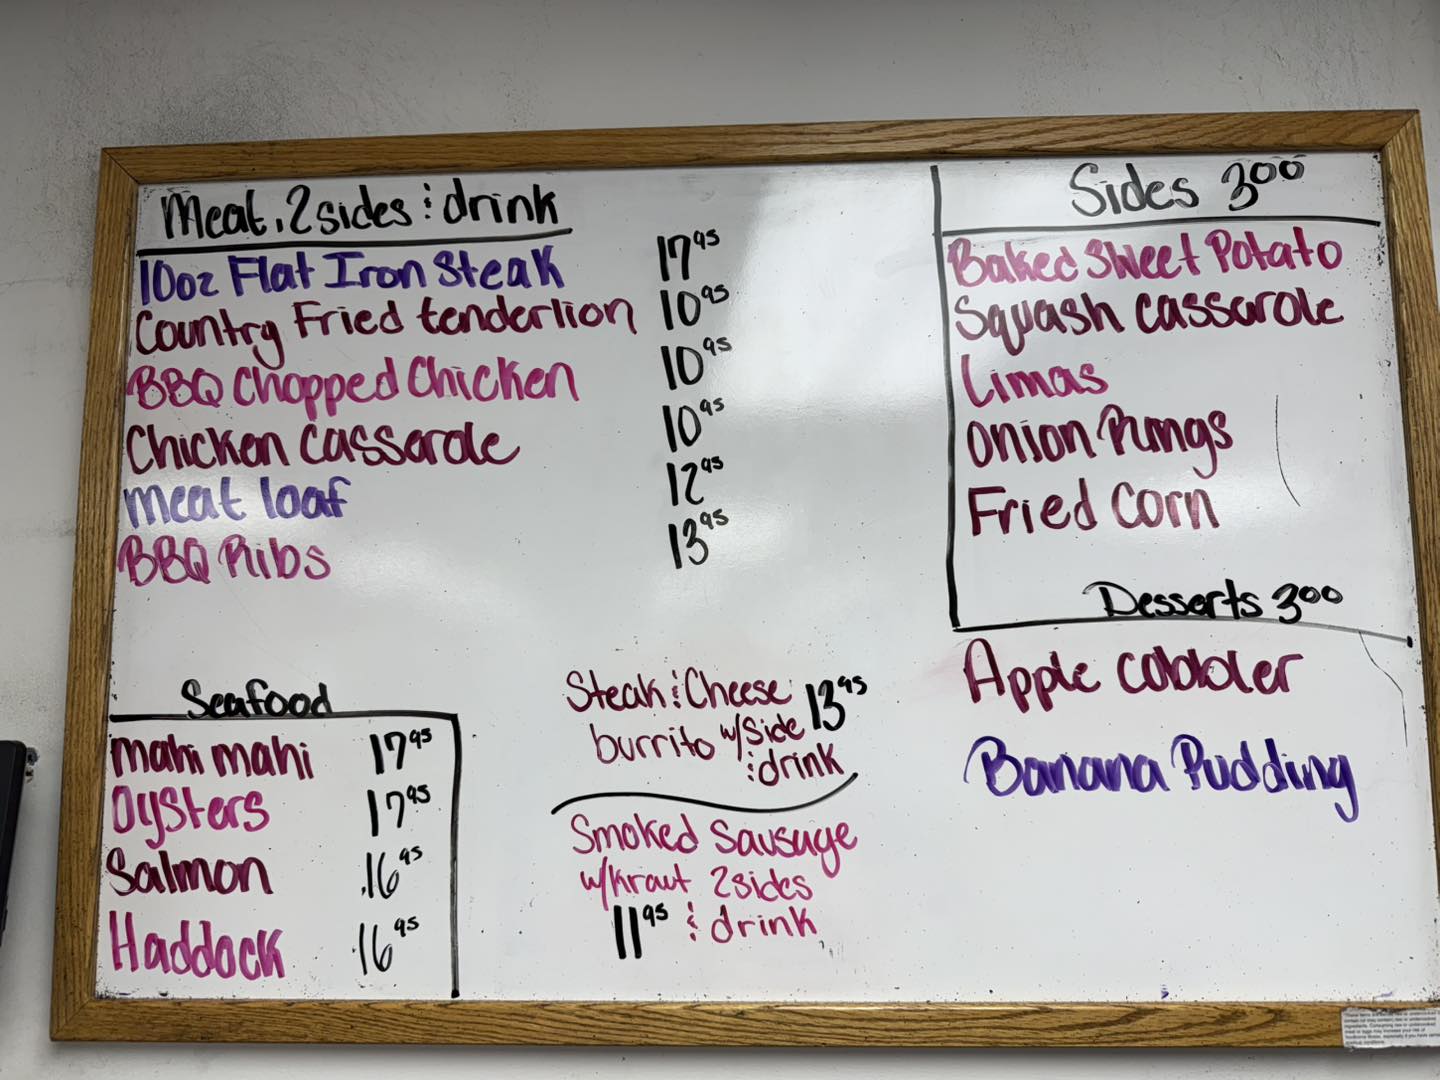 Meat, 2 sides & drink
10oz Flat Iron Steak 17 95
Country Fried tenderlion 10 95
BBQ Chopped Chicken 10 95
Chicken Casserole 10 95
Meat loaf 12 95
BBQ Ribs 13 95
Seafood
Mahi mahi 17 95
Oysters 17 95
Salmon 16 95
Haddock 16 95
Steak & Cheese
burrito w/ Side 13 95
& drink
Smoked Sausage
w/ Kraut 2 sides
11 95 & drink
Sides 3 00
Baked Sweet Potato
Squash Casserole
Limas
Onion Rings
Fried Corn
Desserts 3 00
Apple Cobbler
Banana Pudding